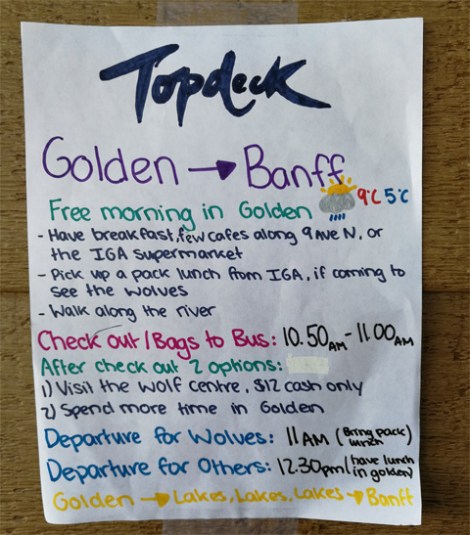 Topdeck
Golden → Banff
Free morning in Golden 9°C 5°C
- Have breakfast, few cafes along 9 Ave N, or
the IGA Supermarket
- Pick up a pack lunch from IGA, if coming to
see the wolves
- Walk along the river
Check out/Bags to Bus: 10.50AM - 11.00AM
After check out 2 options:
1) Visit the Wolf Centre, $12 cash only
2) Spend more time in Golden
Departure for Wolves: 11AM (Bring pack lunch)
Departure for Others: 12.30pm (have lunch in golden)
Golden → Lakes, Lakes, Lakes → Banff